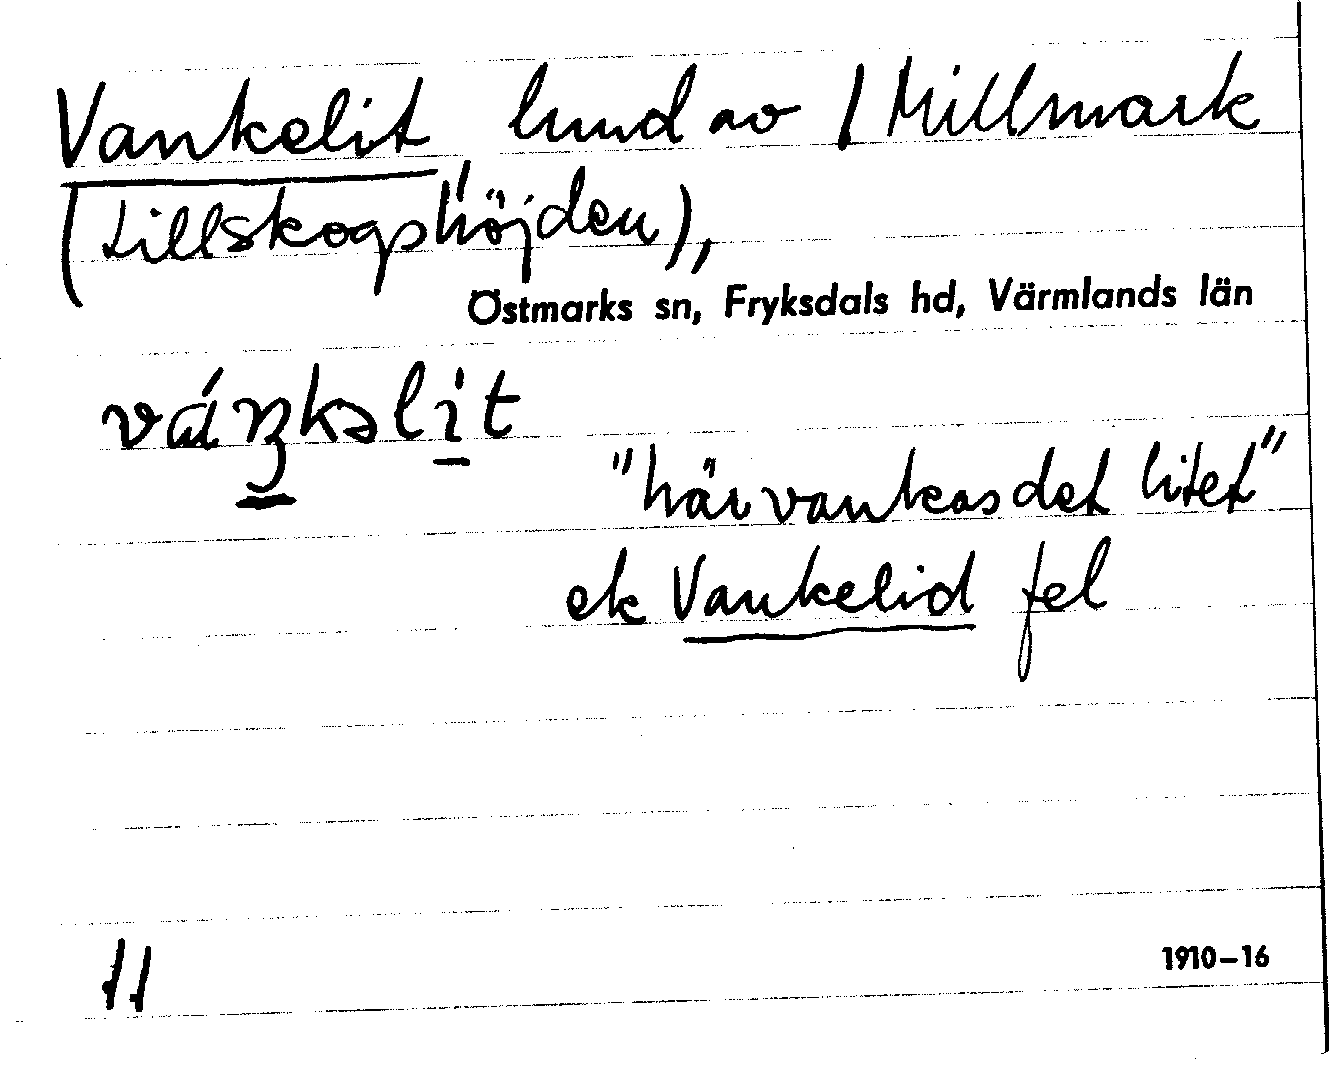 Vankelit lund av / Millmark
(Lillskogshöjden),
Östmarks sn, Fryksdals hd, Värmlands län
váŋkəlit
"här vankas det litet"
ek Vankelid fel
11
1910–16